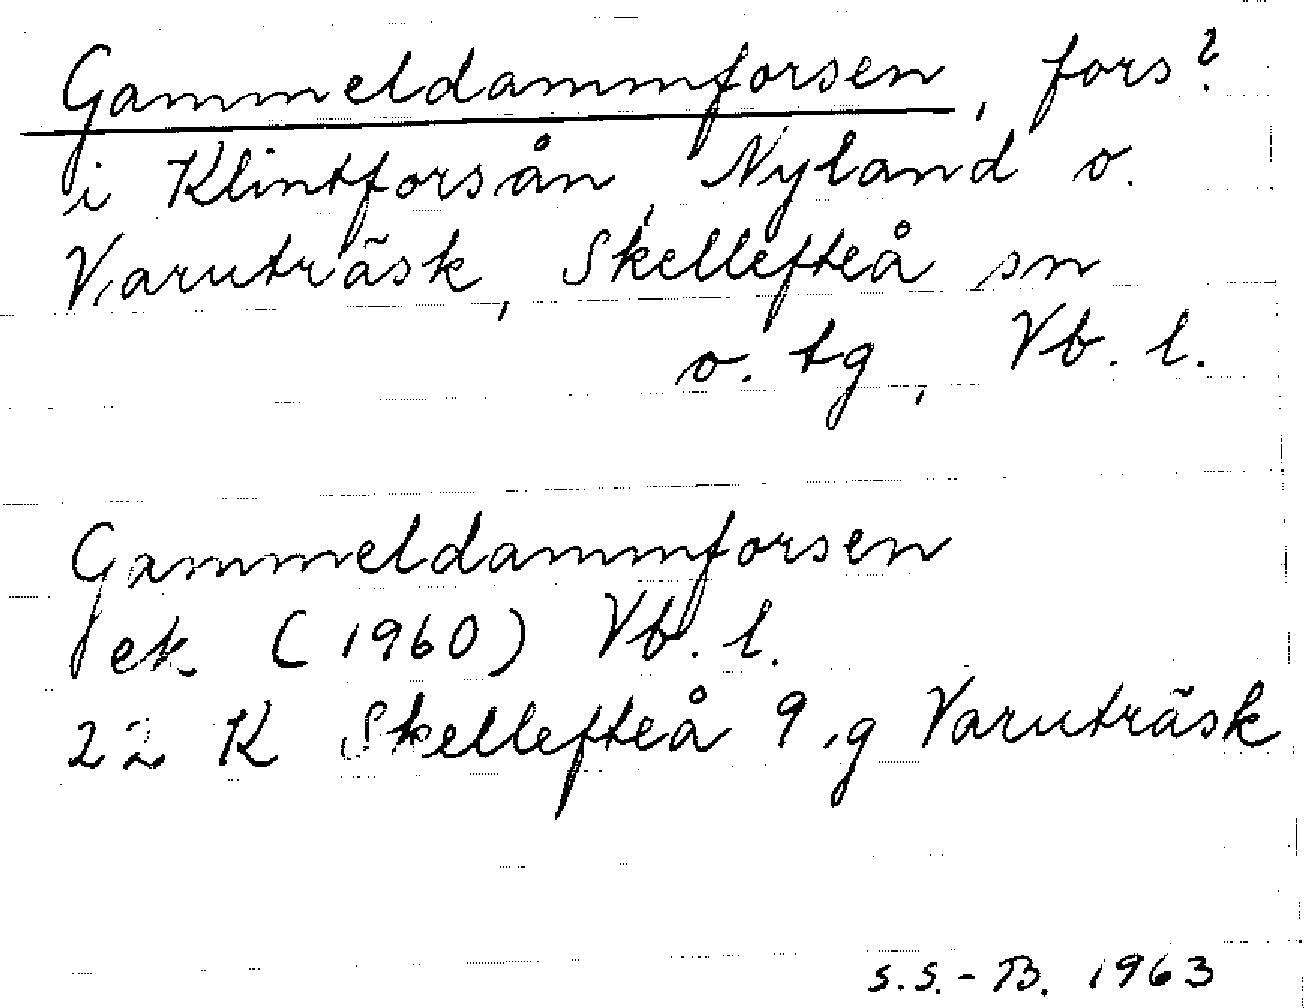 Gammeldammforsen, fors?
i Klintforsån, Nyland o.
Varuträsk, Skellefteå sn
o. tg, Vb. l.
Gammeldammforsen
ek (1960) Vb. l.
22 K Skellefteå 9 g Varuträsk
S.S.-B. 1963